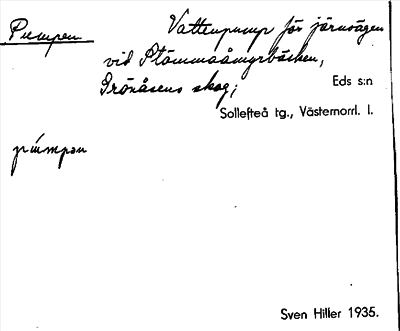 Pumpen
Vattenpump för järnvägen
vid Stömmaåmyrbäcken,
Grönåsens skog;
Eds s:n
Sollefteå tg., Västernorrl. l.
púmpan
Sven Hiller 1935.